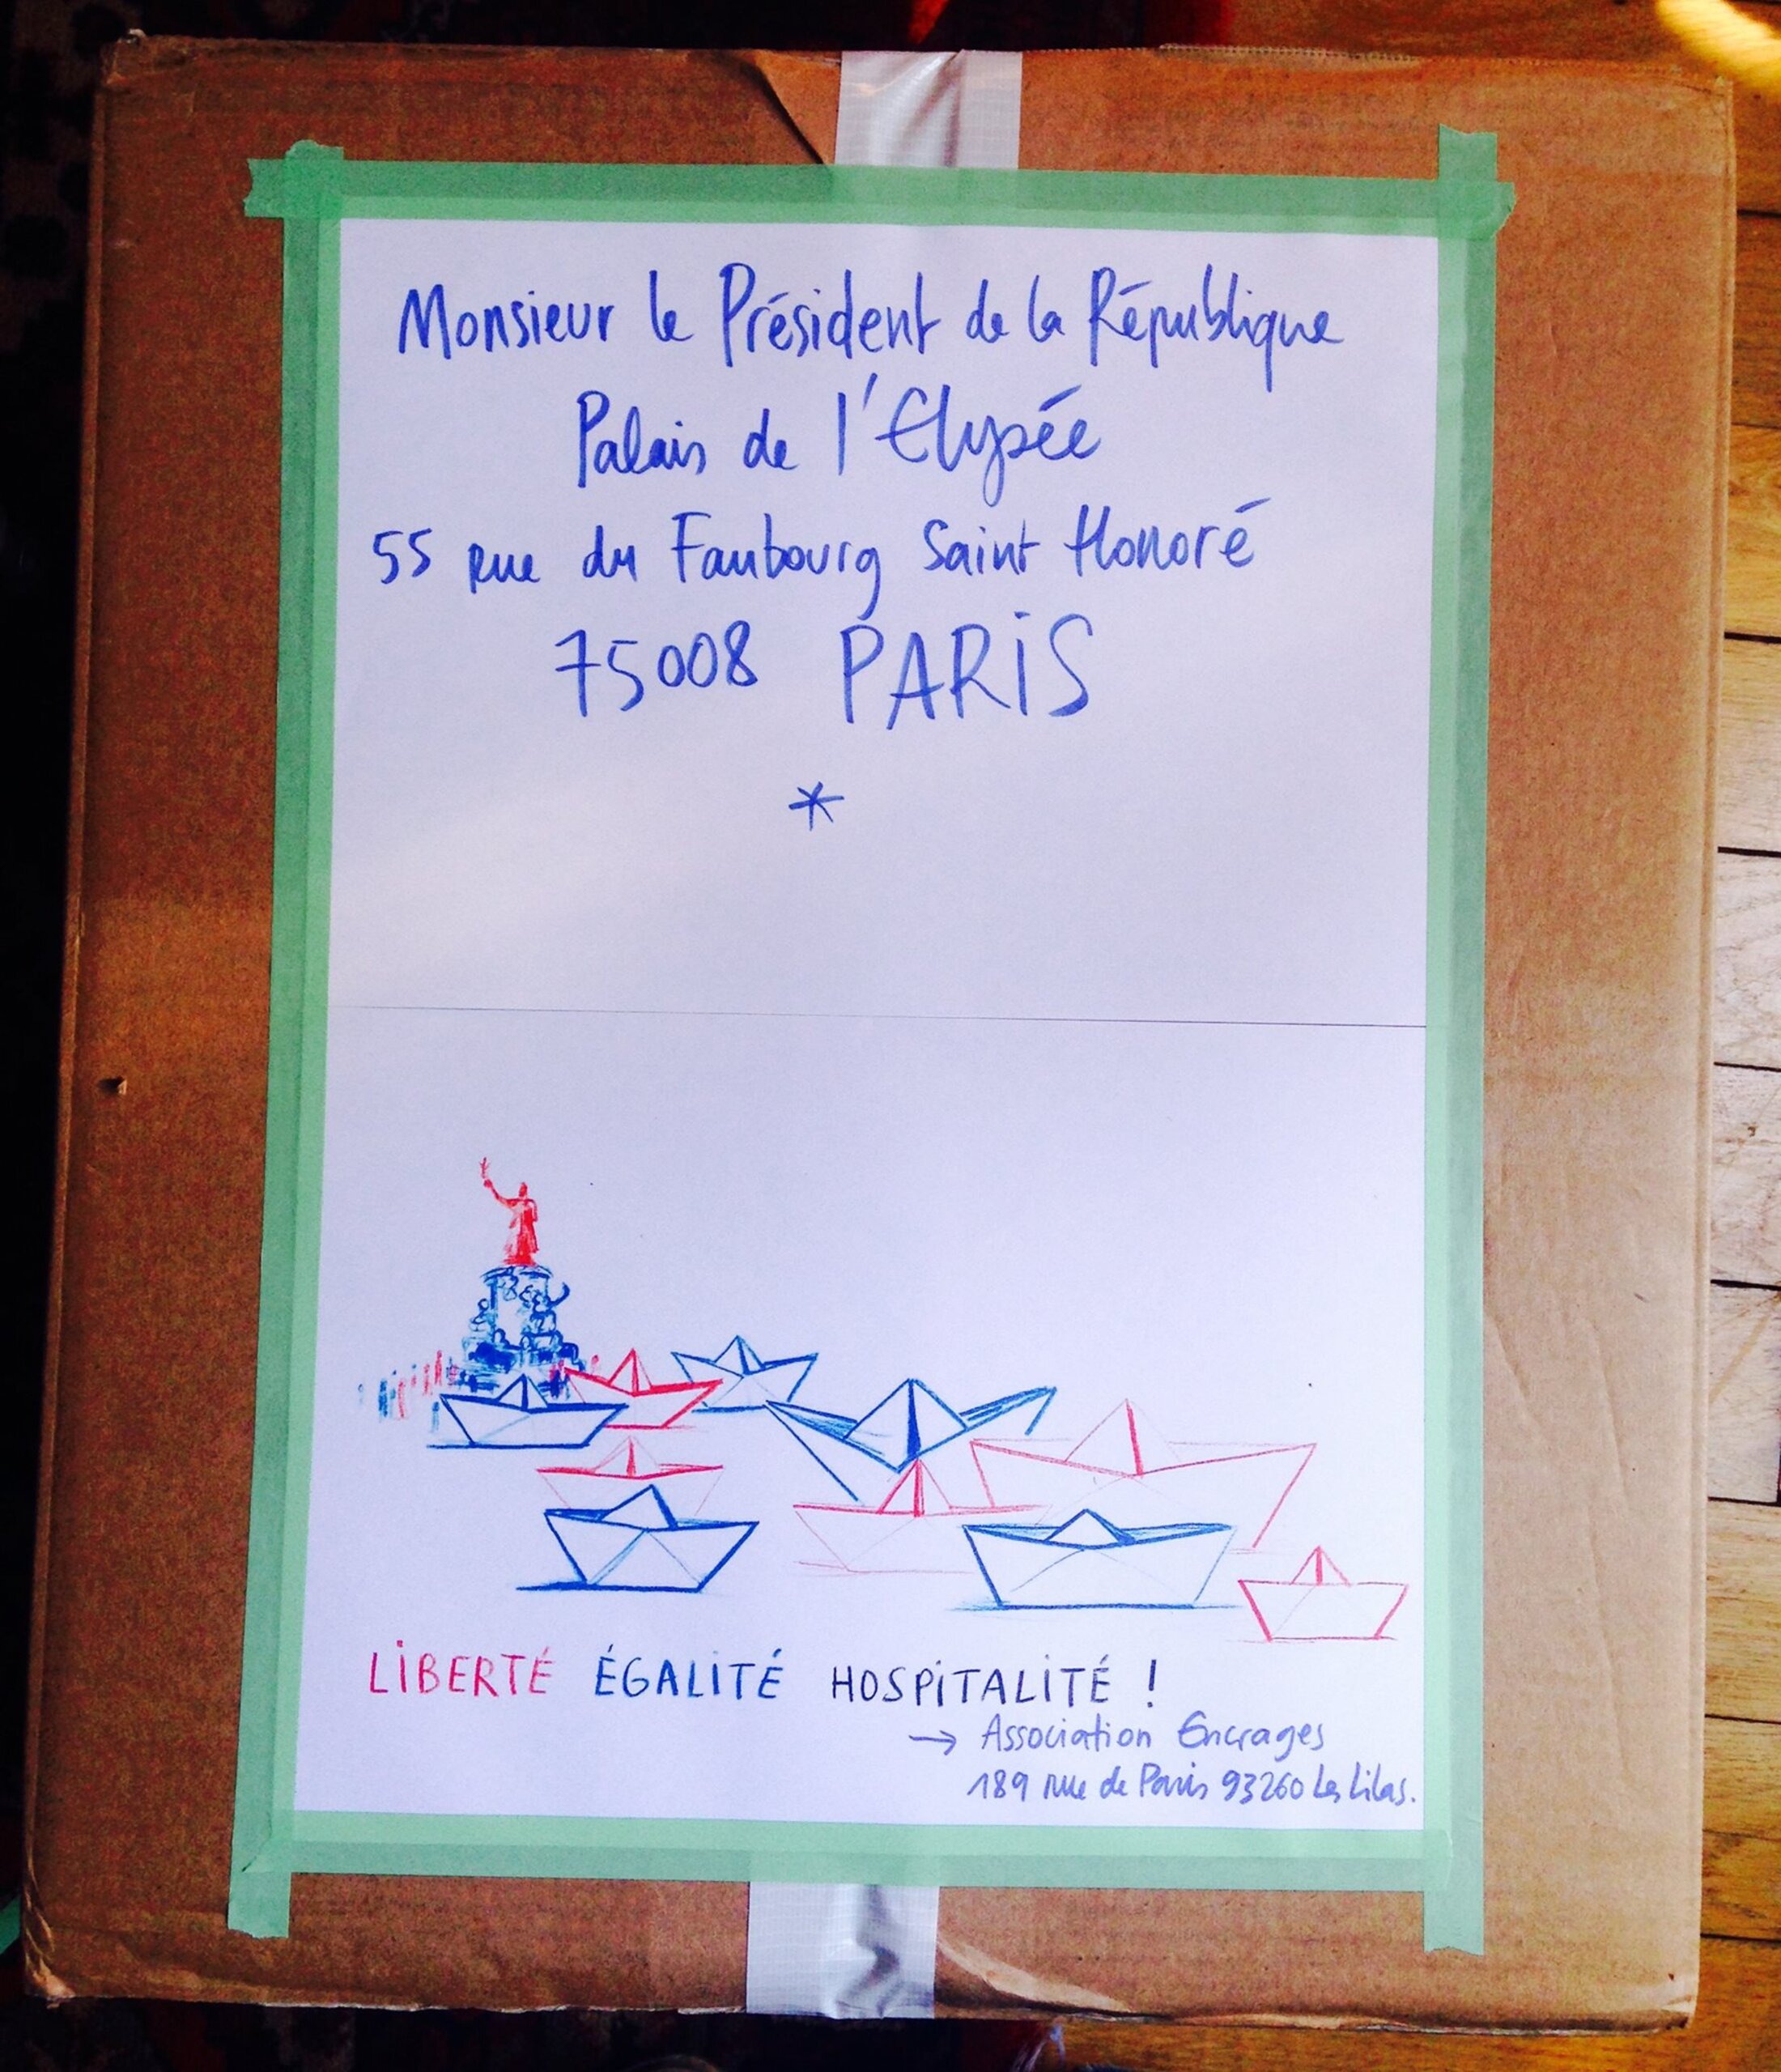 Monsieur le Président de la République
Palais de l'Elysée
55 rue du Faubourg Saint Honoré
75008 PARIS
*
LIBERTÉ ÉGALITÉ HOSPITALITÉ !
→ Association Encrages
189 rue de Paris 93260 Les Lilas.